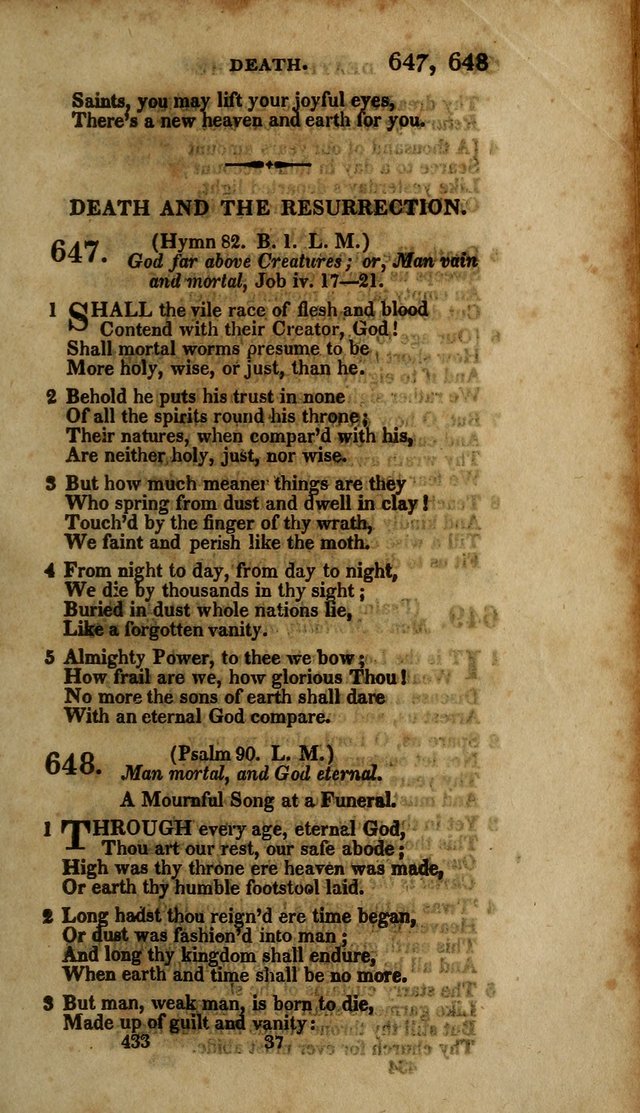 DEATH. 647, 648
Saints, you may lift your joyful eyes,
There's a new heaven and earth for you.
DEATH AND THE RESURRECTION.
647. (Hymn 82. B. 1. L. M.)
God far above Creatures; or, Man vain
and mortal, Job iv. 17—21.
1 SHALL the vile race of flesh and blood
Contend with their Creator, God!
Shall mortal worms presume to be
More holy, wise, or just, than he.
2 Behold he puts his trust in none
Of all the spirits round his throne;
Their natures, when compar'd with his,
Are neither holy, just, nor wise.
3 But how much meaner things are they
Who spring from dust and dwell in clay!
Touch'd by the finger of thy wrath,
We faint and perish like the moth.
4 From night to day, from day to night,
We die by thousands in thy sight;
Buried in dust whole nations lie,
Like a forgotten vanity.
5 Almighty Power, to thee we bow;
How frail are we, how glorious Thou!
No more the sons of earth shall dare
With an eternal God compare.
648. (Psalm 90. L. M.)
Man mortal, and God eternal.
A Mournful Song at a Funeral.
1 THROUGH every age, eternal God,
Thou art our rest, our safe abode;
High was thy throne ere heaven was made,
Or earth thy humble footstool laid.
2 Long hadst thou reign'd ere time began,
Or dust was fashion'd into man;
And long thy kingdom shall endure,
When earth and time shall be no more.
3 But man, weak man, is born to die,
Made up of guilt and vanity:
433 37